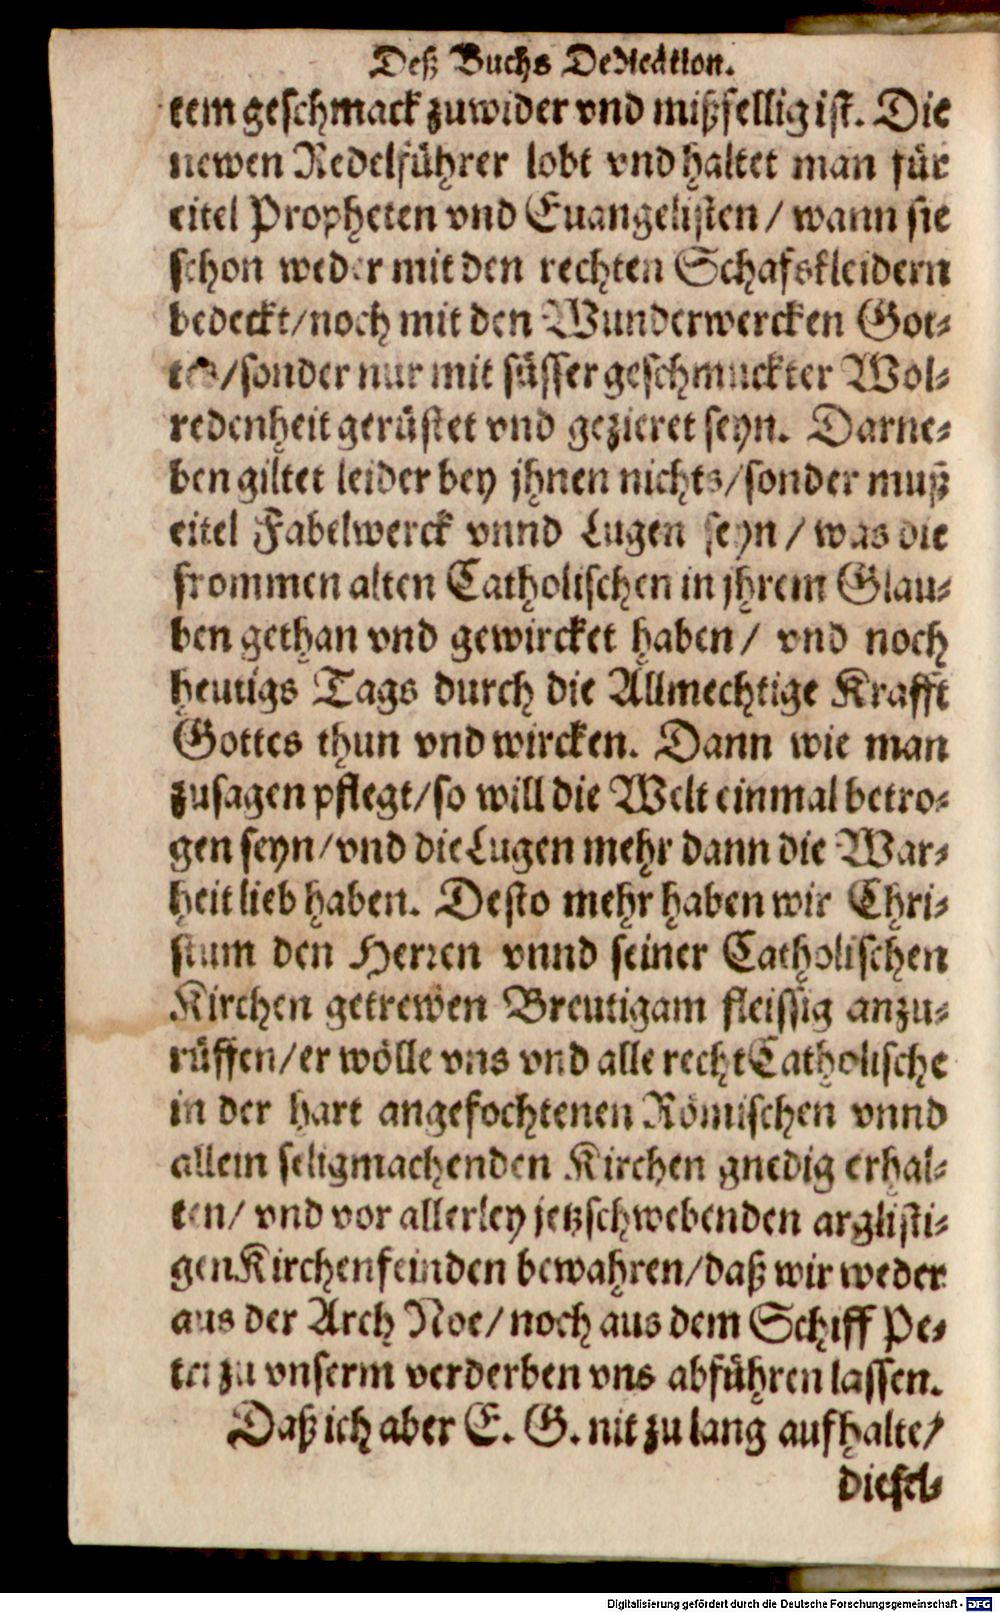 Deß Buchs Dedication.
tem geschmack zuwider vnd mißfellig ist. Die
newen Redelführer lobt vnd haltet man für
eitel Propheten vnd Euangelisten/ wann sie
schon weder mit den rechten Schafskleidern
bedeckt/noch mit den Wunderwercken Got-
tes/sonder nur mit süsser geschmuckter Wol-
redenheit gerüstet vnd gezieret seyn. Darne-
ben giltet leider bey jhnen nichts/sonder muß
eitel Fabelwerck vnnd Lugen seyn/ was die
frommen alten Catholischen in jhrem Glau-
ben gethan vnd gewircket haben/ vnd noch
heutigs Tags durch die Allmechtige Krafft
Gottes thun vnd wircken. Dann wie man
zusagen pflegt/so will die Welt einmal betro-
gen seyn/vnd die Lugen mehr dann die War-
heit lieb haben. Desto mehr haben wir Chri-
stum den Herren vnnd seiner Catholischen
Kirchen getrewen Breutigam fleissig anzu-
rüffen/er wölle vns vnd alle recht Catholische
in der hart angefochtenen Römischen vnnd
allein seligmachenden Kirchen gnedig erhal-
ten/ vnd vor allerley jetzschwebenden arglisti-
gen Kirchenfeinden bewahren/daß wir weder
aus der Arch Noe/noch aus dem Schiff Pe-
tri zu vnserm verderben vns abführen lassen.
Daß ich aber E. G. nit zu lang aufhalte/
diesel-
Digitalisierung gefördert durch die Deutsche Forschungsgemeinschaft - DFG